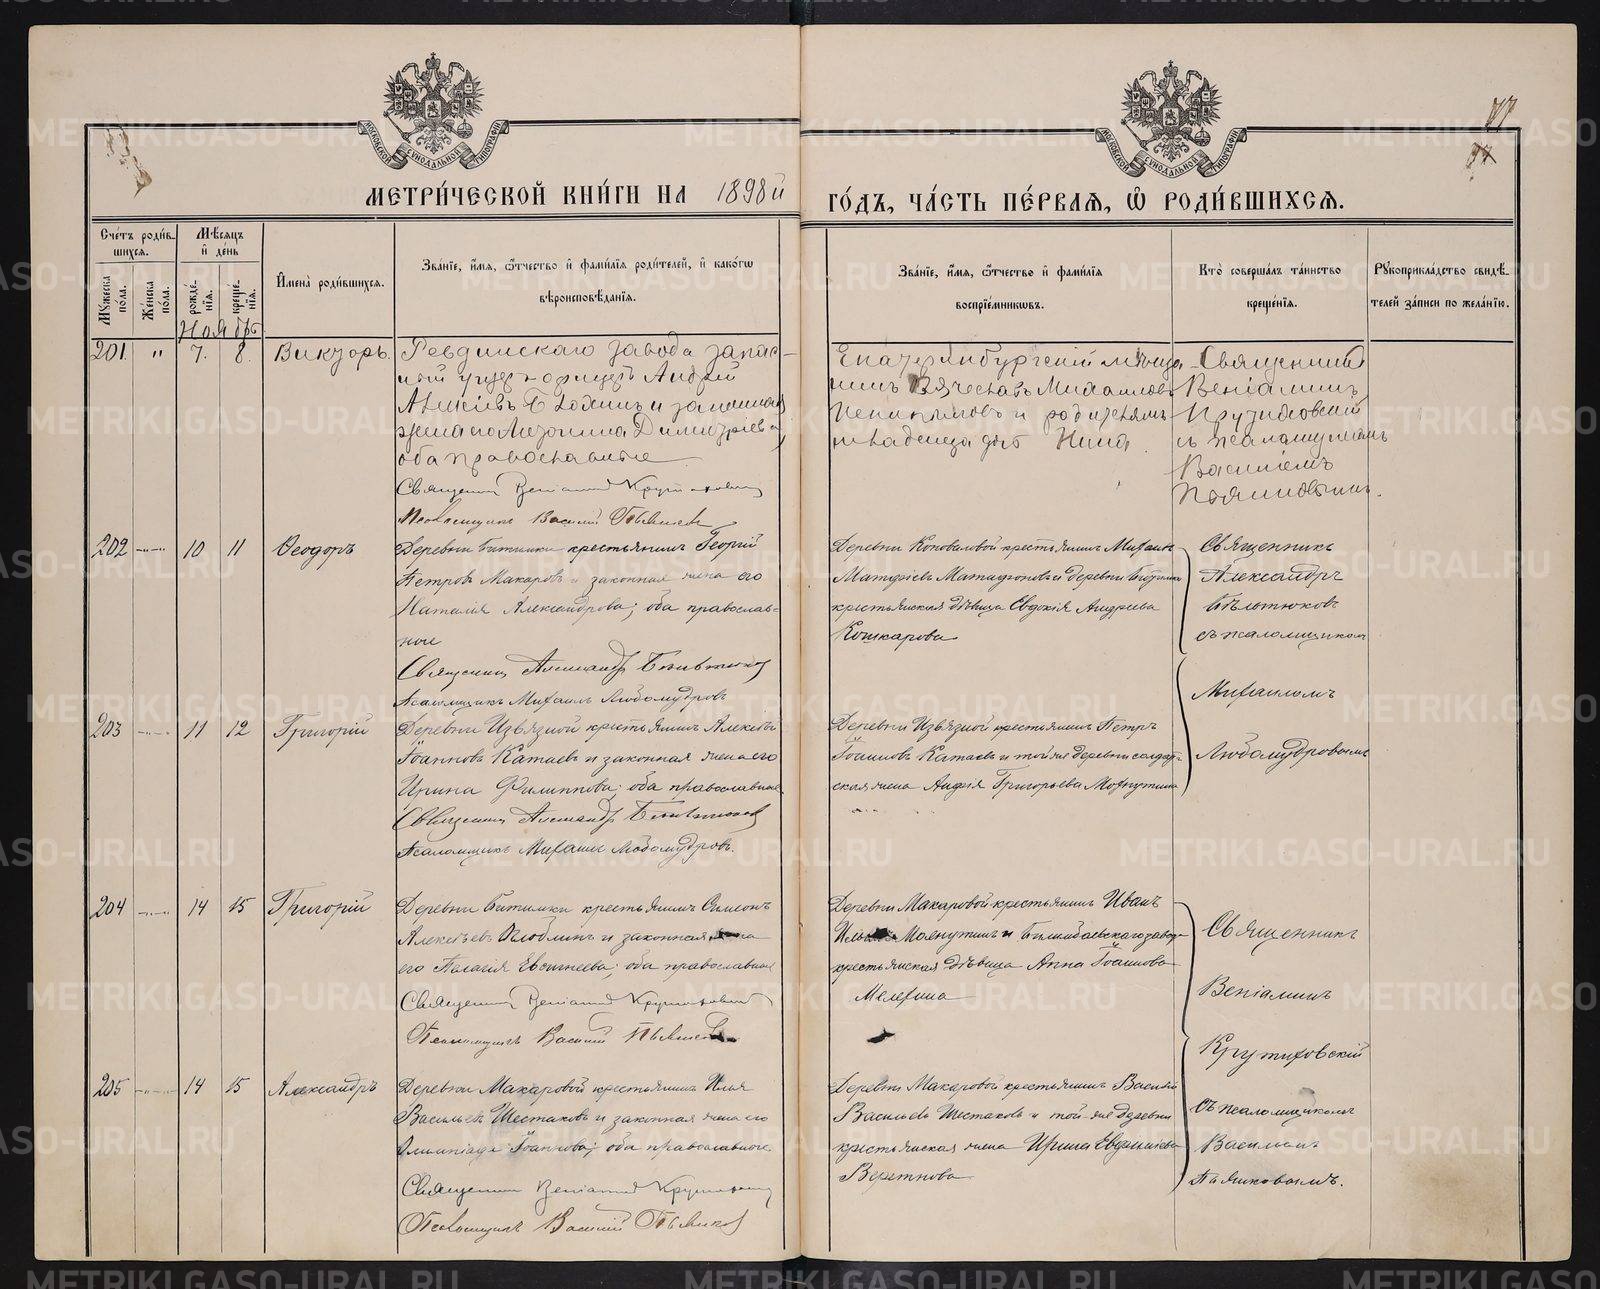 МОСКОВСКОЙ СѴНОДАЛЬНОЙ ТИПОГРАФІИ
МОСКОВСКОЙ СѴНОДАЛЬНОЙ ТИПОГРАФІИ
МЕТРИ́ЧЕСКОЙ КНИ́ГИ НА 1898й
ГО́ДЪ, ЧА́СТЬ ПЕ́РВАѦ, Ѡ҆ РОДИ́ВШИХСѦ.
Сче́тъ роди́в-
шихсѧ.
Мѣ́сѧцъ
и҆ де́нь
Мꙋ́жеска по́ла.
Же́нска по́ла.
рожде́нїѧ.
креще́нїѧ.
И҆мена̀ роди́вшихсѧ.
Зва́нїе, и҆́мѧ, ѻ҆́тчество и҆ фами́лїѧ роди́телей, и҆ како́гѡ
вѣроисповѣ́данїѧ.
Зва́нїе, и҆́мѧ, ѻ҆́тчество и҆ фами́лїѧ
воспрїе́мникѡвъ.
Кто̀ соверша́лъ та́инство
креще́нїѧ.
Рꙋкоприкла́дство свидѣ́-
телей за́писи по жела́нїю.
Ноябрь
201. " 7. 8. Викторъ.
Ревдинскаго завода запас-
ной унтеръ офицеръ Андрей
Алексѣевъ и законная
жена его Димитріева
оба православные
Священник Веніамин Крутиховский
Псаломщикъ Василий
Екатеринбургскій мѣща-
нинъ Вячеславъ Михаиловъ
и родителямъ
младенца дочь Нина.
Священникъ
Веніаминъ
Крутиховский
съ псаломщикомъ
Василіемъ
202 10 11 Ѳеодоръ
Деревни Битимки крестьянинъ Георгій
Петровъ Макаровъ и законная жена его
Наталія Александрова; оба православ-
ные
Священник Александръ
Псаломщикъ Михаилъ Любомудровъ
Деревни Коноваловой крестьянинъ Михаилъ
и деревни Битимки
крестьянская дѣвица Евдокія Андреева
Кошкарова
Священникъ
Александръ
съ псаломщикомъ
Михаиломъ
Любомудровымъ
203 11 12 Григорій
Деревни Извязной крестьянинъ Алексѣй
Іоанновъ Катаевъ и законная жена его
Ирина Филиппова; оба православные
Священник Александръ
Псаломщикъ Михаилъ Любомудровъ.
Деревни Извязной крестьянинъ Петръ
Іоанновъ Катаевъ и той же деревни солдат-
ская жена Григорьева
204 14 15 Григорій
Деревни Битимки крестьянинъ Симеонъ
Алексѣевъ и законная жена
его Пелагія Евсигнеева; оба православные
Священник Веніамин Крутиховский
Псаломщикъ Василий
Деревни Макаровой крестьянинъ Иванъ
и Билимбаевскаго завода
крестьянская дѣвица Анна Іоаннова
Мелехина
Священникъ
Веніаминъ
Крутиховскій
съ псаломщикомъ
Васильемъ
205 14 15 Александръ
Деревни Макаровой крестьянинъ Илья
Васильевъ Шестаковъ и законная жена его
Олимпіада Іоаннова; оба православные.
Священник Веніамин
Псаломщикъ Василий
Деревни Макаровой крестьянинъ Василий
Васильевъ Шестаковъ и той же деревни
крестьянская жена Ирина
METRIKI.GASO-URAL.RU